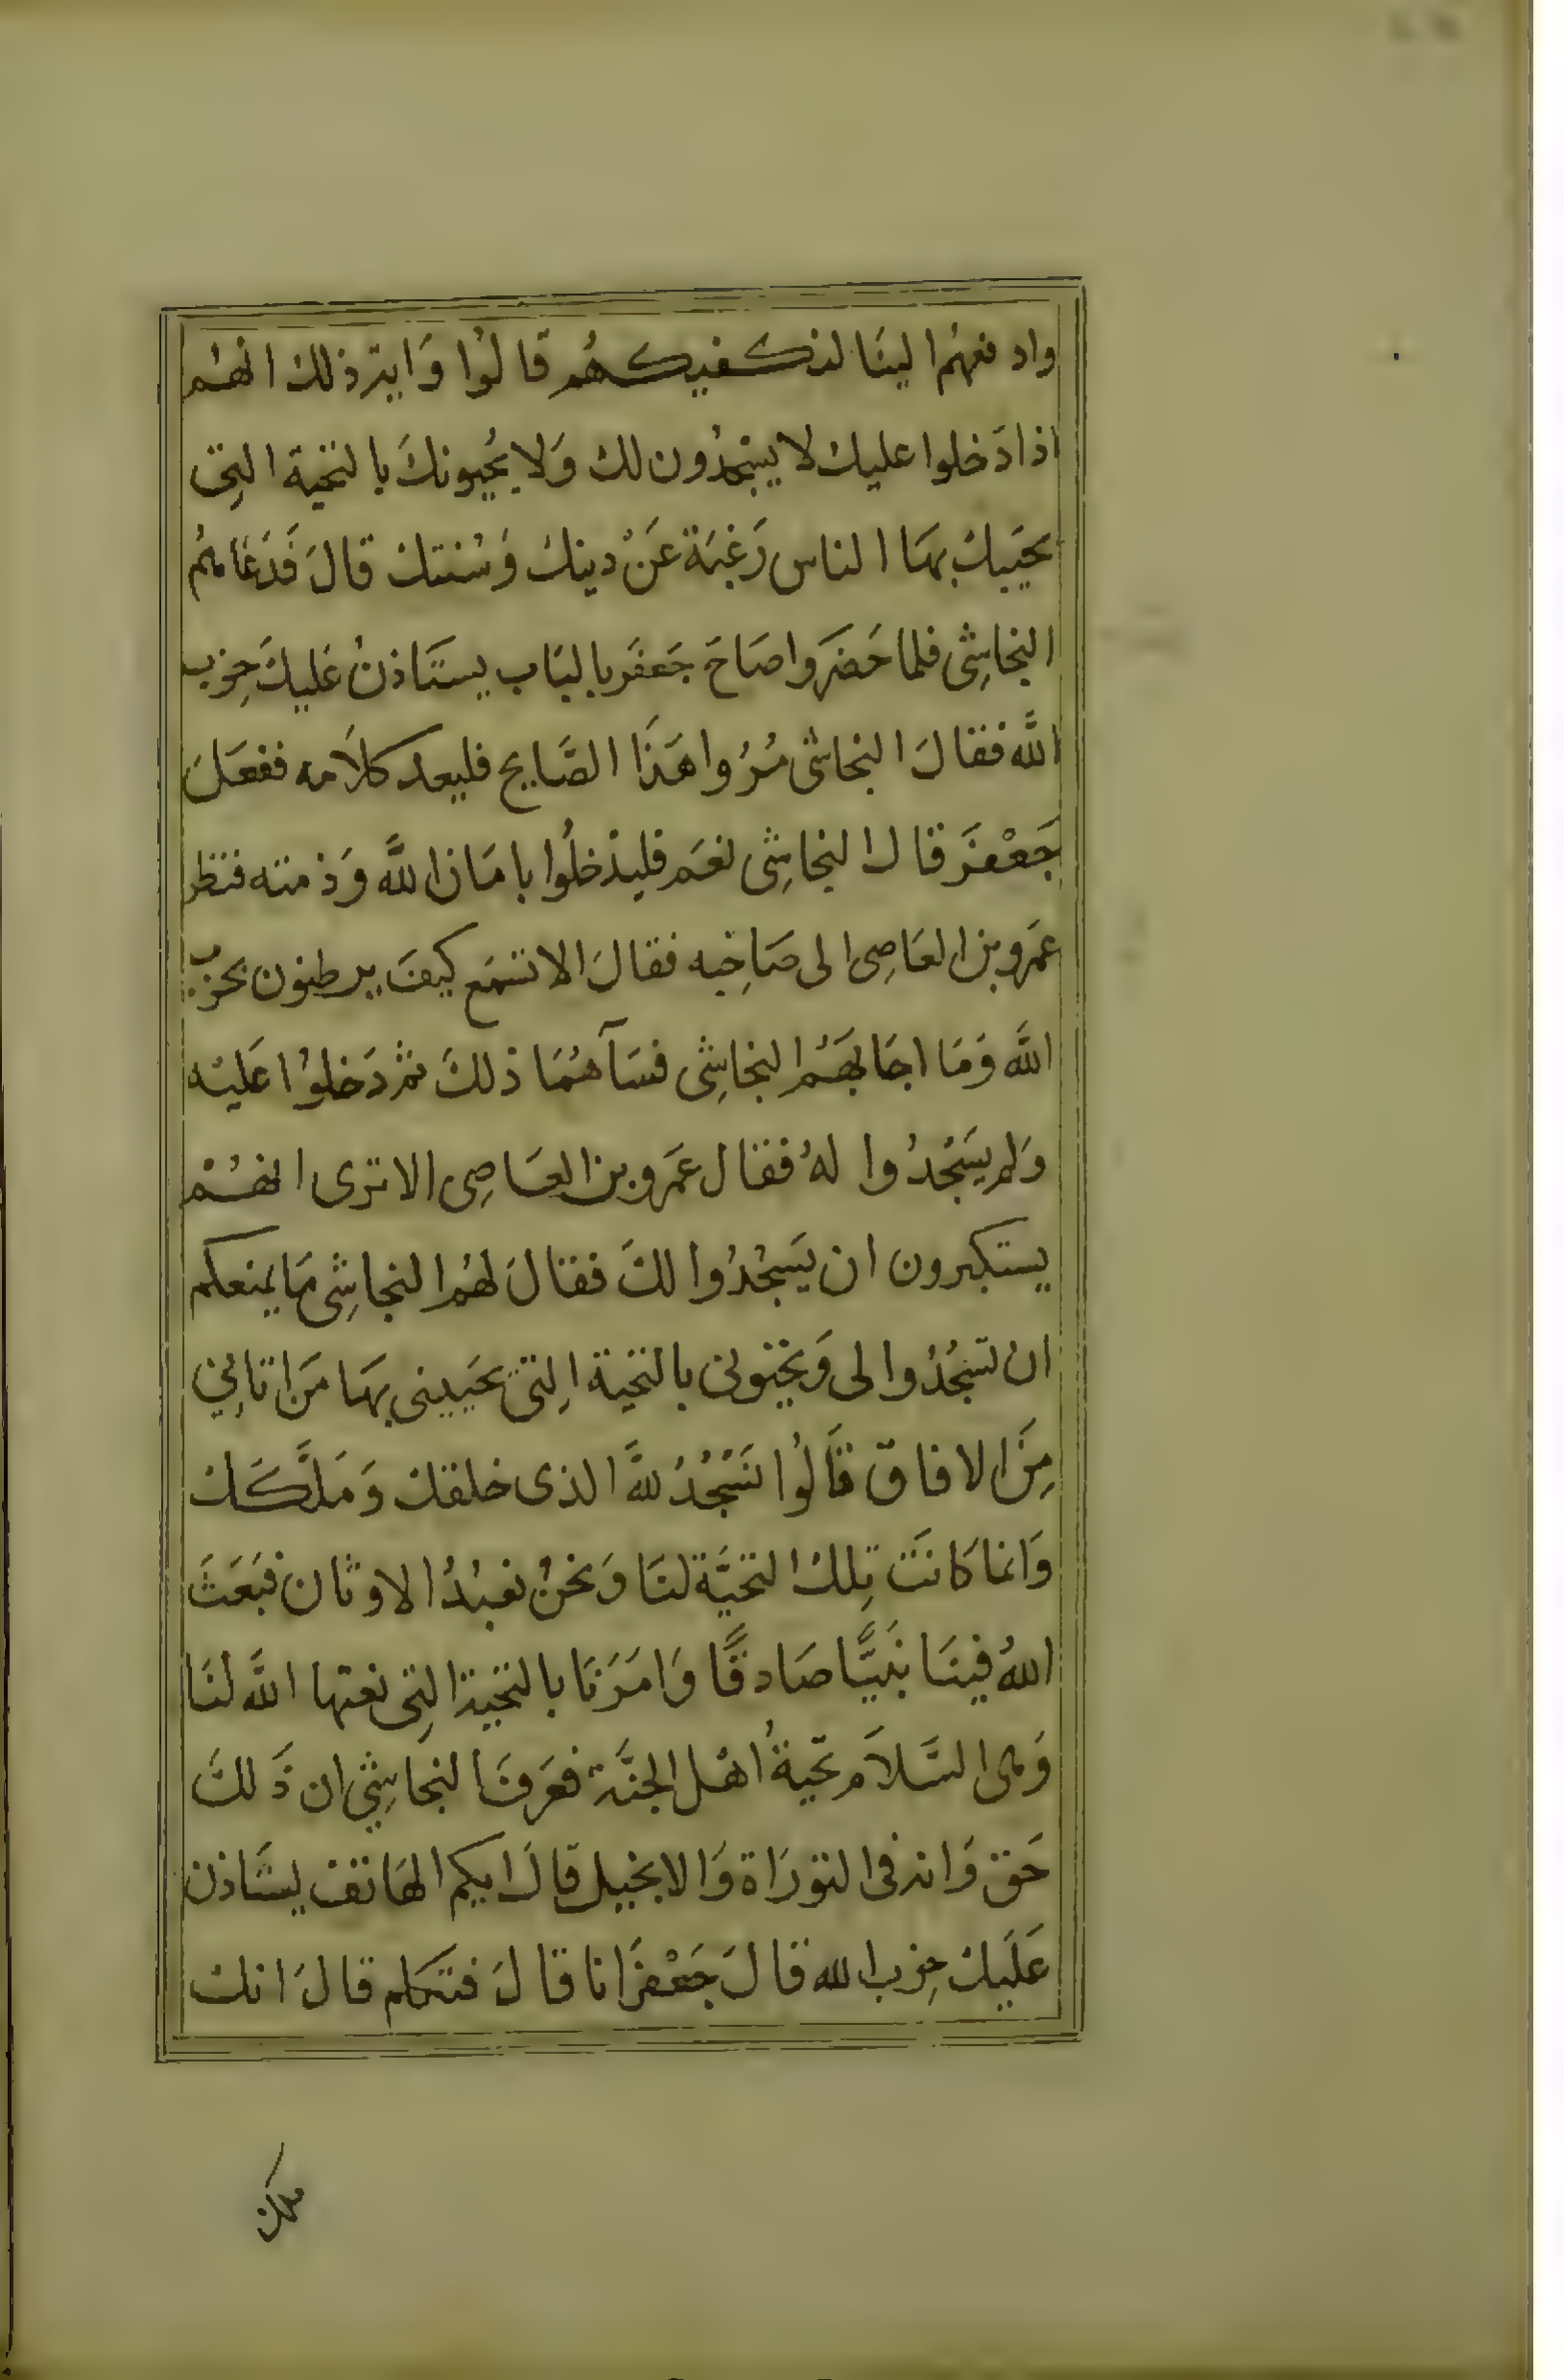 وادفعهُم الينَا لنكفيكهُم قالوُا وَاية ذلك انهُم
اذا دَخلوا عليك لا يسْجدُون لك وَلا يُحيونكَ بالتحية التِى
يحَييك بهَا الناس رَغبَة عَنْ دينك وَسُنتك قالَ فَدَعَاهُم
النجاشِى فلما حَضَروا صَاحَ جَعفَر بالبَاب يستَاذنُ عَليكَ حِزب
اللَّه فقالَ النجاشى مُرُوا هَذَا الصَّايح فليعد كلاَمه ففعَلَ
جَعْفَر قالَ النجاشِى نعَم فليدْخلُوا بامَان اللَّه وَذمته فنظر
عمَرو بن العَاصِى الى صَاحِبه فقالَ الا تسْمَع كيفَ يرطنون بحزب
اللَّه وَمَا اجَابهَمُ النجَاشِى فسَآهُمَا ذلكَ ثم دَخلوُا عَليْه
وَلم يسَجْدُوا لهُ فقال عمَرو بن العَاصِى الا ترى انهُمْ
يستكبرون ان يَسجُدُوا لكَ فقالَ لهُم النجاشِى مَا يمنعكم
ان تسْجُدُوا لى وَتحيّونى بالتحَية التِى يحَيينى بهَا مَن اتانِي
مِنَ الافاق قَالُوا نَسْجُدُ للَّه الذى خلقك وَمَلَّكَك
وَانما كَانَتَ تِلكَ التحيَّة لنَا وَنحنُ نعبُدُ الاوثان فبَعَثَ
اللهُ فينَا نَبيًّا صَادقًا وَامَرَنَا بالتحَية التِى نعتها اللَّه لنَا
وَهى السَّلاَم تحّيةُ اهْل الجنَّة فعَرفَ النجاشِي ان ذَلكَ
حَق وَانه فى التورَاة وَالانجيل قالَ ايكم الهَاتف يستَاذن
عَلَيك حِزب الله قالَ جَعْفَر انا قالَ فتكلم قالَ انك
ملك